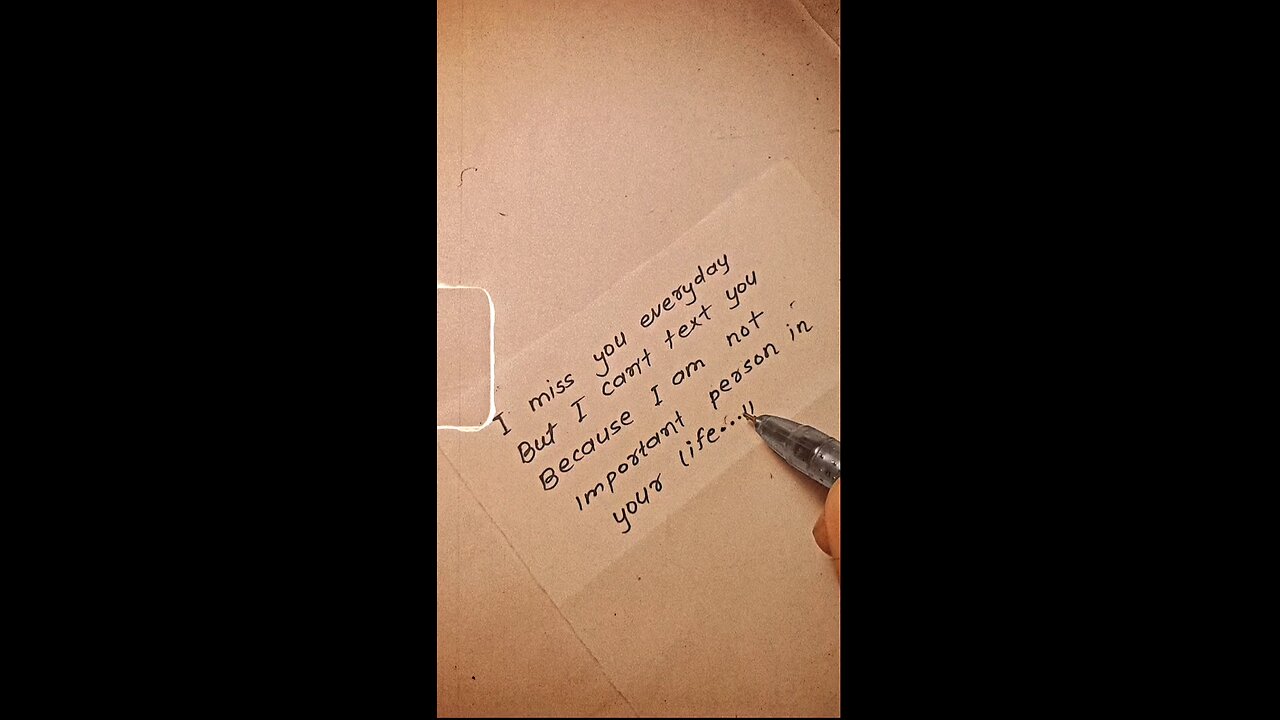 I miss you everyday
But I can't text you
Because I am not
important person in
your life...!!